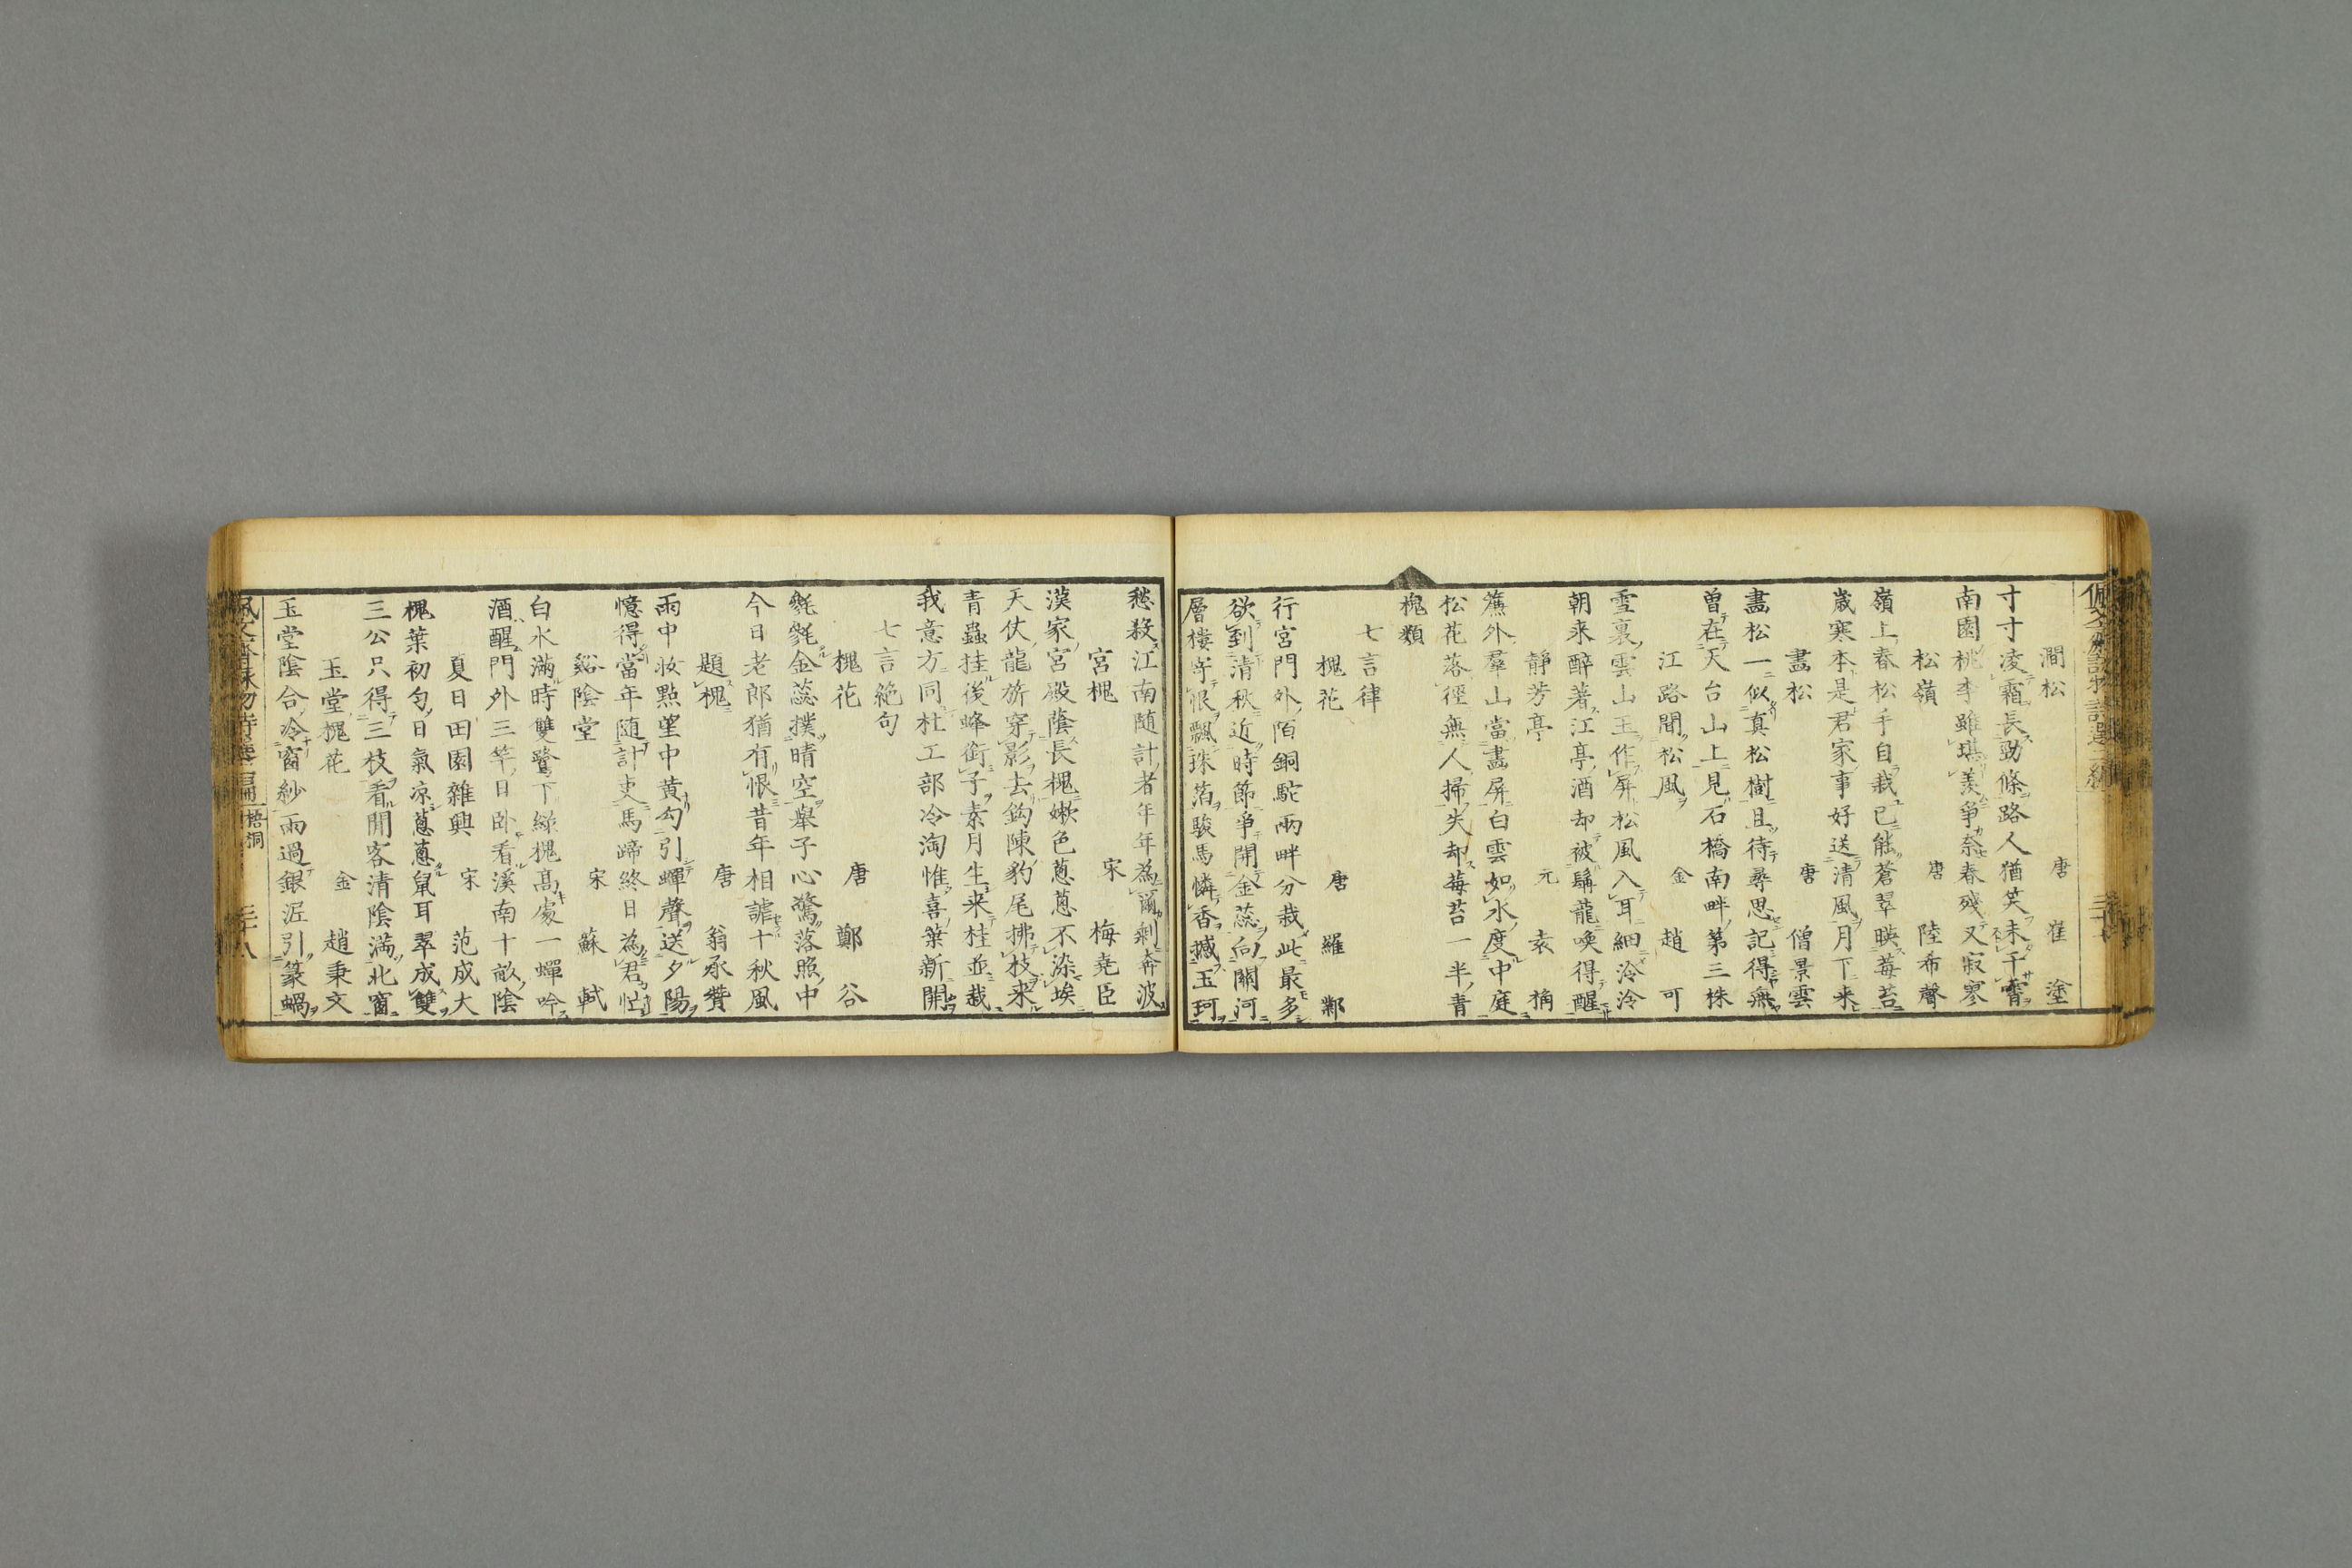 澗松　唐　崔塗
寸寸凌霜長勁條路人猶笑未千霄
南園桃李雖堪羨爭奈春殘又寂寥
松嶺　唐　陸希聲
嶺上春松手自栽已能蒼翠映莓苔
歲寒本是君家事好送清風月下来
畵松　唐　僧景雲
畵松一似真松樹且待尋思記得無
曽在天台山上見石橋南畔第三株
江路聞松風　金　趙可
雪裏雲山玉作屏松風入耳細泠泠
朝来醉著江亭酒却被髯龍喚得醒
靜芳亭　元　袁桷
簾外羣山當畵屏白雲如水度中庭
松花落徑無人掃失却莓苔一半青
槐類
七言律
槐花　唐　羅鄴
行宮門外陌銅駝兩畔分栽此最多
欲到清秋近時節爭開金蕊向關河
層樓寄恨飄珠箔駿馬憐香撼玉珂
愁殺江南随計者年年為爾剩奔波
宮槐　宋　梅堯臣
漢家宮殿蔭長槐嫩色蔥蔥不染埃
天仗龍旂穿影去鈎陳豹尾拂枝来
青蟲挂後蜂銜子素月生来桂並栽
我意方同杜工部冷淘惟喜葉新開
七言絶句
槐花　唐　鄭谷
毿毿金蕊撲晴空舉子心驚落照中
今日老郎猶有恨昔年相謔十秋風
題槐　唐　翁承贊
雨中妝點望中黄勾引蟬聲送夕陽
憶得當年随計吏馬蹄終日為君忙
谿陰堂　宋　蘇軾
白水滿時雙鷺下緑槐髙處一蟬吟
酒醒門外三竿日卧看溪南十畝陰
夏日田園雜興　宋　范成大
槐葉初匀日氣凉蔥蔥鼠耳翠成雙
三公只得三枝看閒客清陰滿北窗
玉堂槐花　金　趙秉文
玉堂陰合冷窗紗雨過銀泥引篆蝸
梧桐
三十八